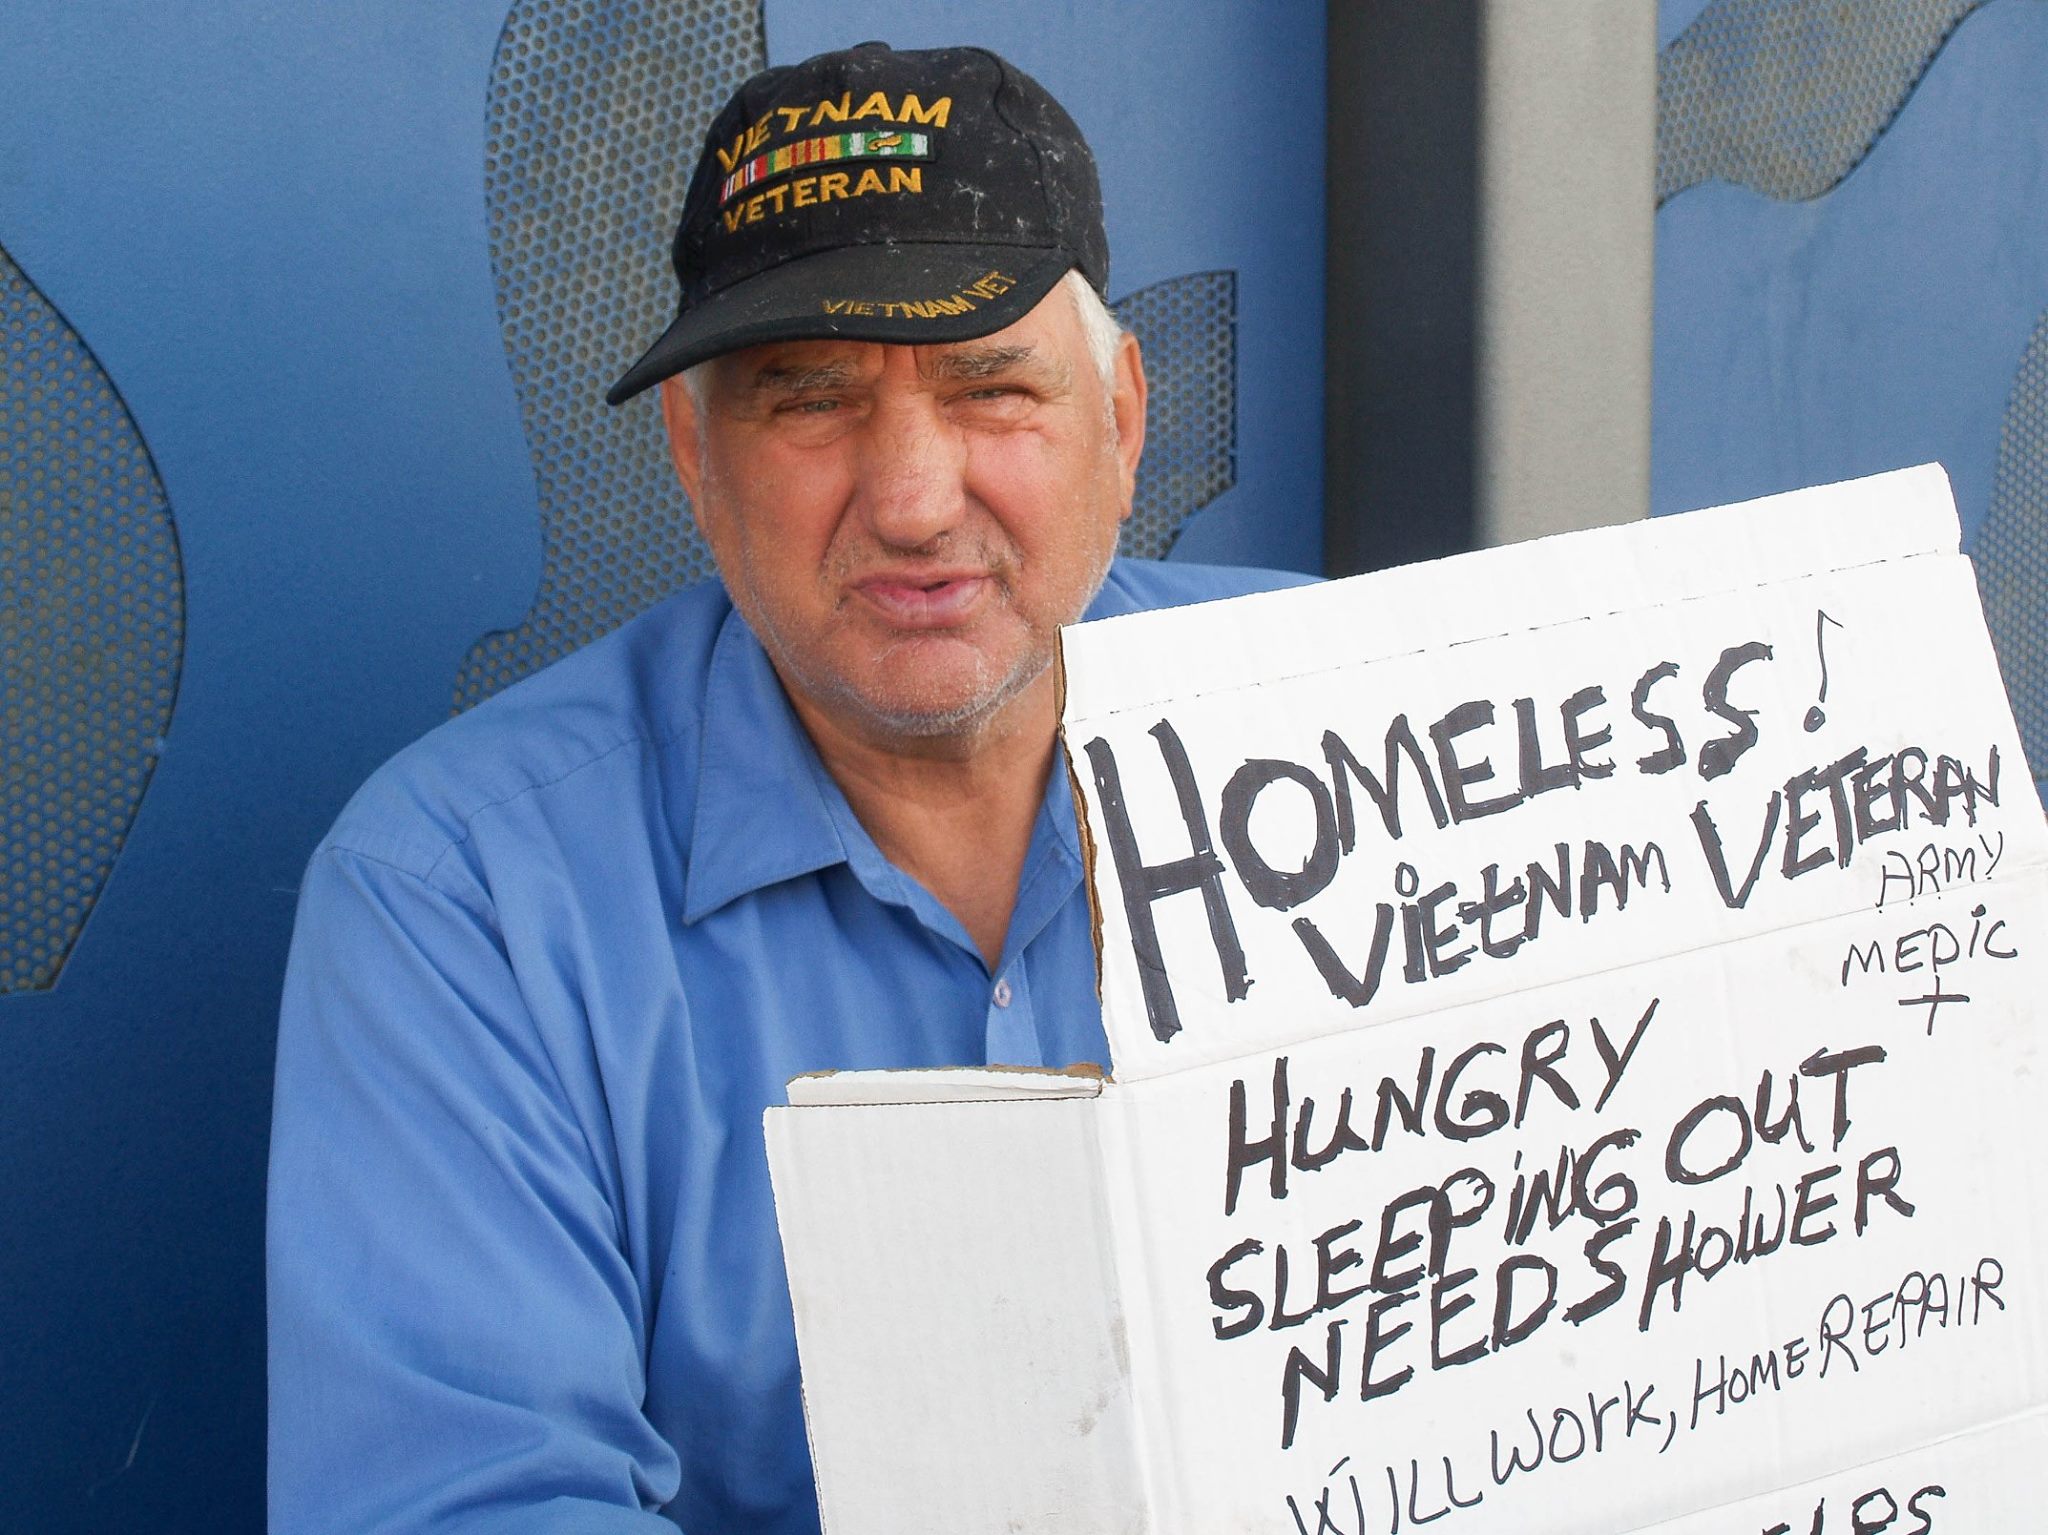 VIETNAM
VETERAN
VIETNAM VET
HOMELESS!
VIETNAM VETERAN
ARMY
MEDIC
HUNGRY
SLEEPING OUT
NEED SHOWER
WILL WORK, HOME REPAIR